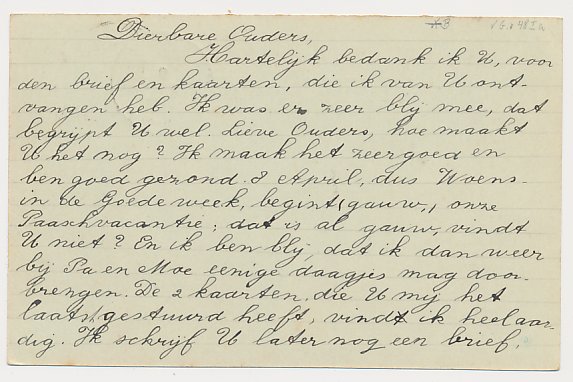 Dierbare Ouders,
Hartelijk bedank ik U, voor
den brief en kaarten, die ik van U ont-
vangen heb. Ik was er zeer blij mee, dat
begrijpt U wel. Lieve Ouders, hoe maakt
U het nog? Ik maak het zeer goed en
ben goed gezond. 8 April, dus Woens-
in de Goede week, begint (gauw,) onze
Paaschvacantie; dat is al gauw, vindt
U niet? En ik ben blij, dat ik dan weer
bij Pa en Moe eenige daagjes mag door-
brengen. De 2 kaarten, die U mij het
laatst gestuurd heeft, vindt ik heel aar-
dig. Ik schrijf U later nog een brief.